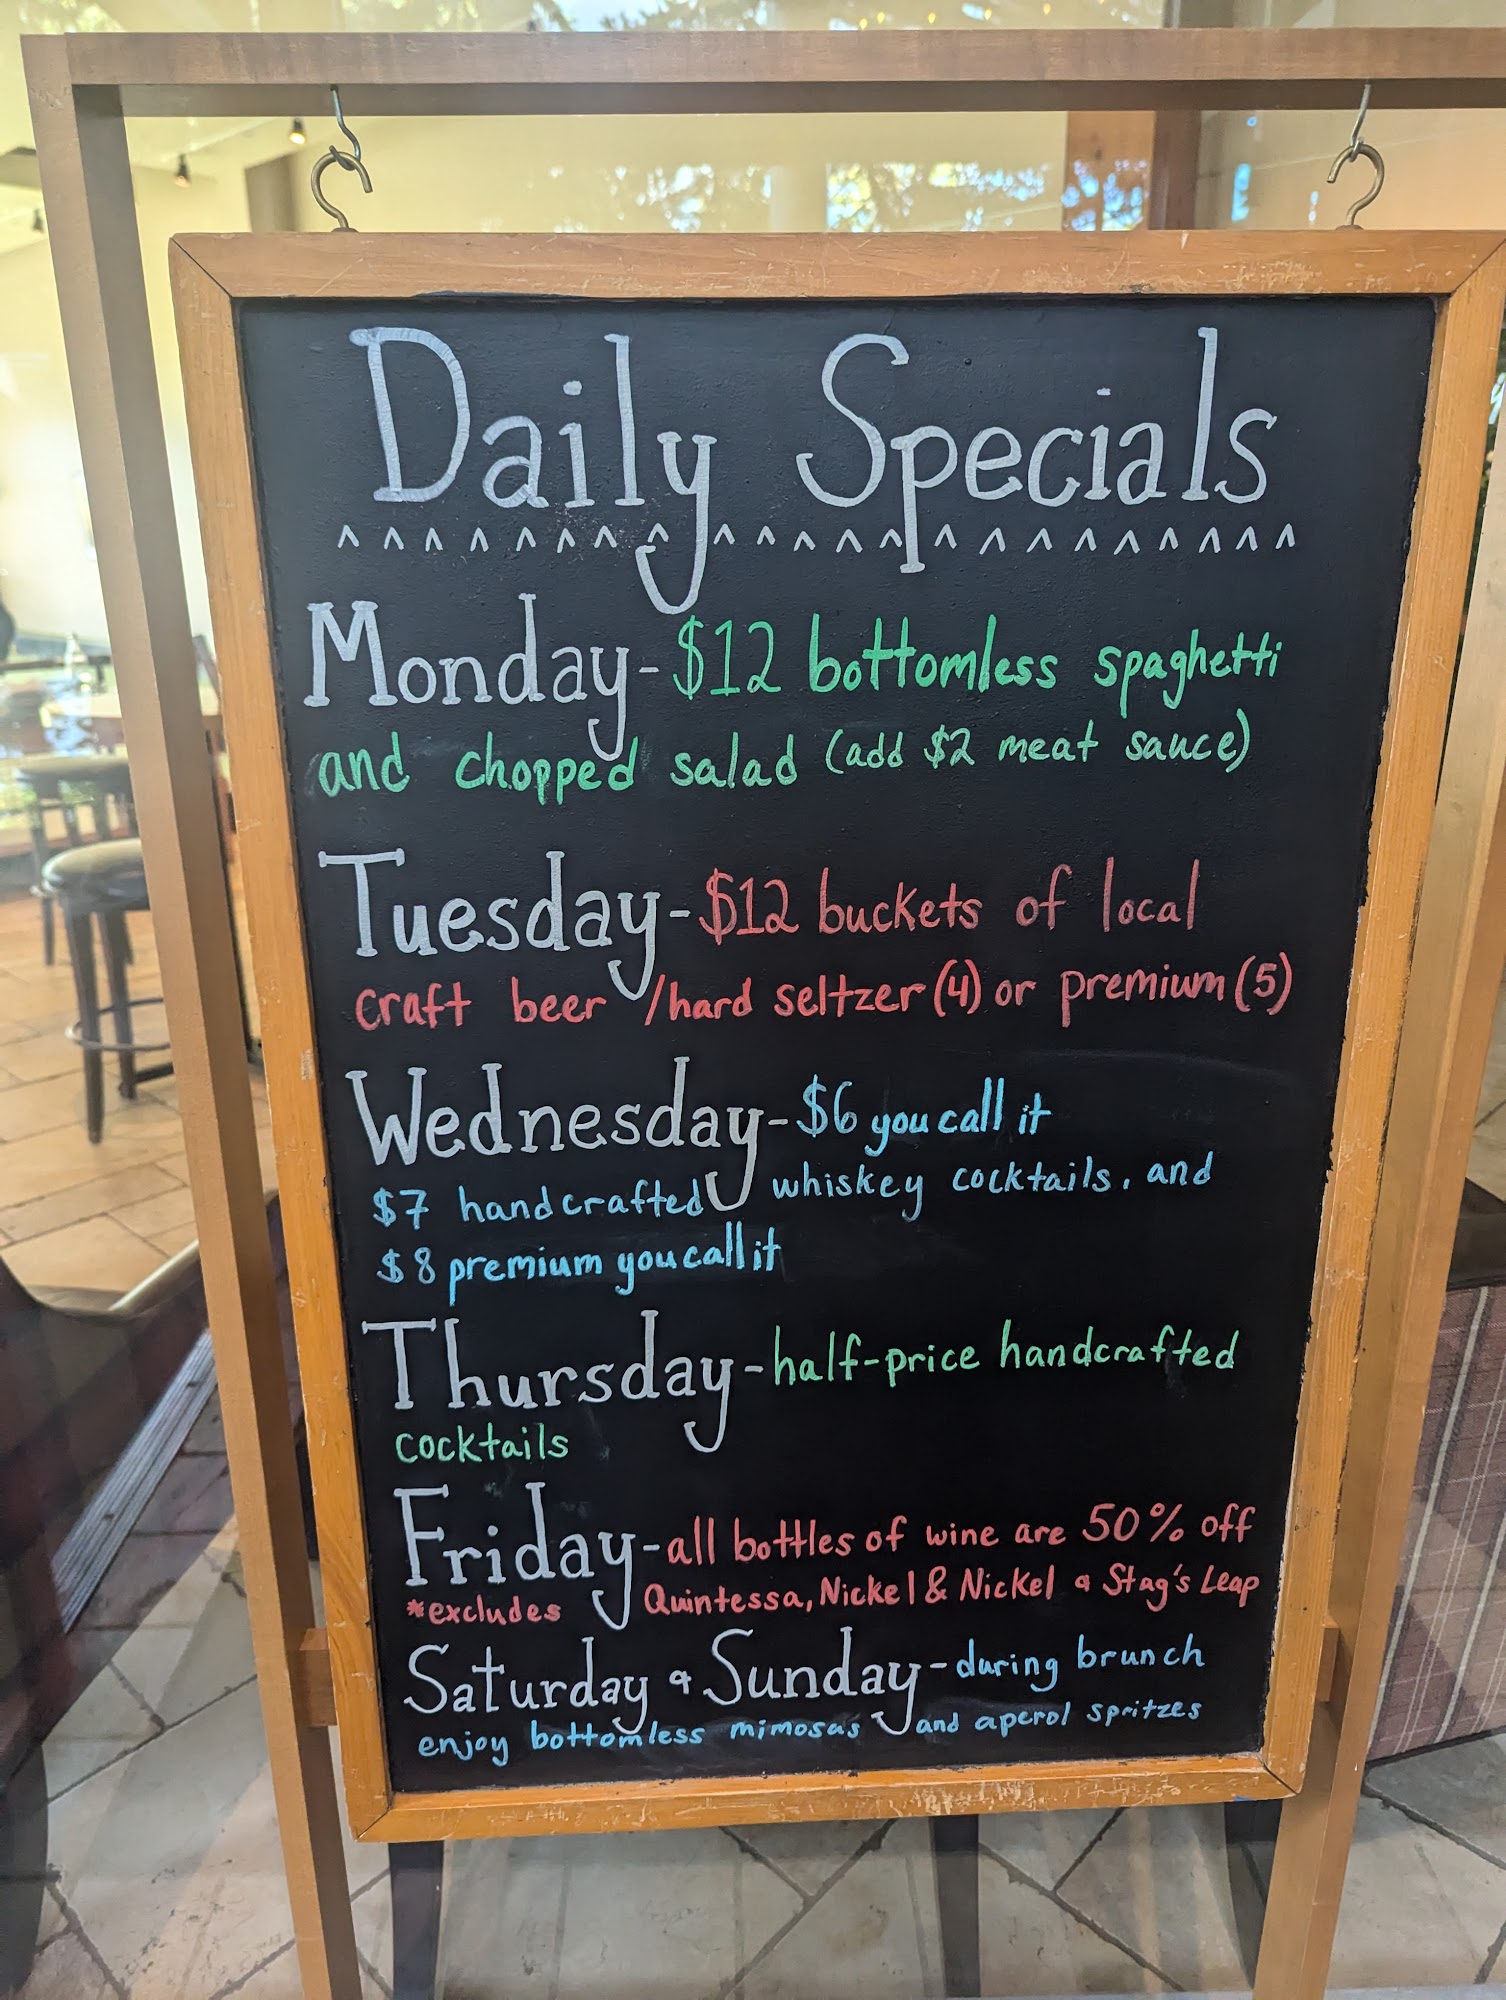 Daily Specials
^^^^^^^^^^^^^^^^^^^^^^^
Monday-$12 bottomless spaghetti
and chopped salad (add $2 meat sauce)
Tuesday-$12 buckets of local
craft beer/hard seltzer(4) or premium(5)
Wednesday-$6 you call it
$7 handcrafted whiskey cocktails, and
$8 premium you call it
Thursday-half-price handcrafted
cocktails
Friday-all bottles of wine are 50% off
*excludes Quintessa, Nickel & Nickel & Stag's Leap
Saturday & Sunday-during brunch
enjoy bottomless mimosas and aperol spritzes